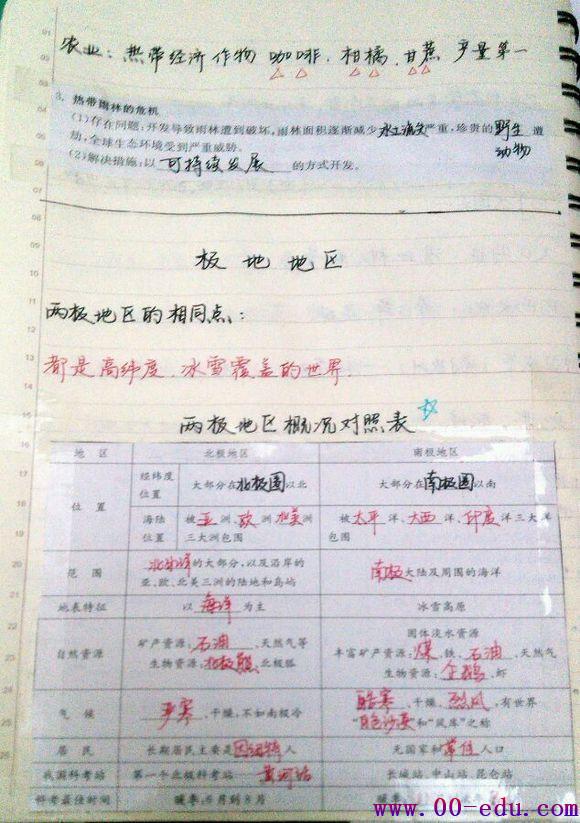 农业：热带经济作物 咖啡、柑橘、甘蔗 产量第一
3. 热带雨林的危机
(1)存在问题：开发导致雨林遭到破坏，雨林面积逐渐减少，水土流失严重，珍贵的野生动物遭
劫，全球生态环境受到严重威胁。
(2)解决措施：以 可持续发展 的方式开发。
极地地区
两极地区的相同点：
都是高纬度、冰雪覆盖的世界.
两极地区概况对照表
地 区 北极地区 南极地区
位 置 经纬度位置 大部分在北极圈以北 大部分在南极圈以南
海陆位置 被亚洲、欧洲、北美洲三大洲包围 被太平洋、大西洋、印度洋三大洋包围
范 围 北冰洋的大部分，以及沿岸的亚、欧、北美三洲的陆地和岛屿 南极大陆及周围的海洋
地表特征 以海洋为主 冰雪高原
自然资源 矿产资源：石油、天然气等 生物资源：北极熊、北极狐 固体淡水资源 丰富矿产资源：煤、铁、石油、天然气 生物资源：企鹅、虾
气 候 严寒、干燥，不如南极冷 酷寒、干燥、烈风，有世界“白色沙漠”和“风库”之称
居 民 长期居民主要是因纽特人 无国家和常住人口
我国科考站 第一个北极科考站 黄河站 长城站、中山站、昆仑站
科考最佳时间 暖季：6月到8月 暖季：
www.00-edu.com